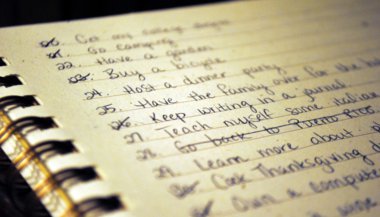 20. Get my college degree
21. Go camping
22. Have a garden
23. Buy a bicycle
24. Host a dinner party
25. Have the family over for the
26. Keep writing in a journal
27. Teach myself some Italian
28. Go back to Puerto Rico
29. Learn more about
30. Cook Thanksgiving
Own a compute